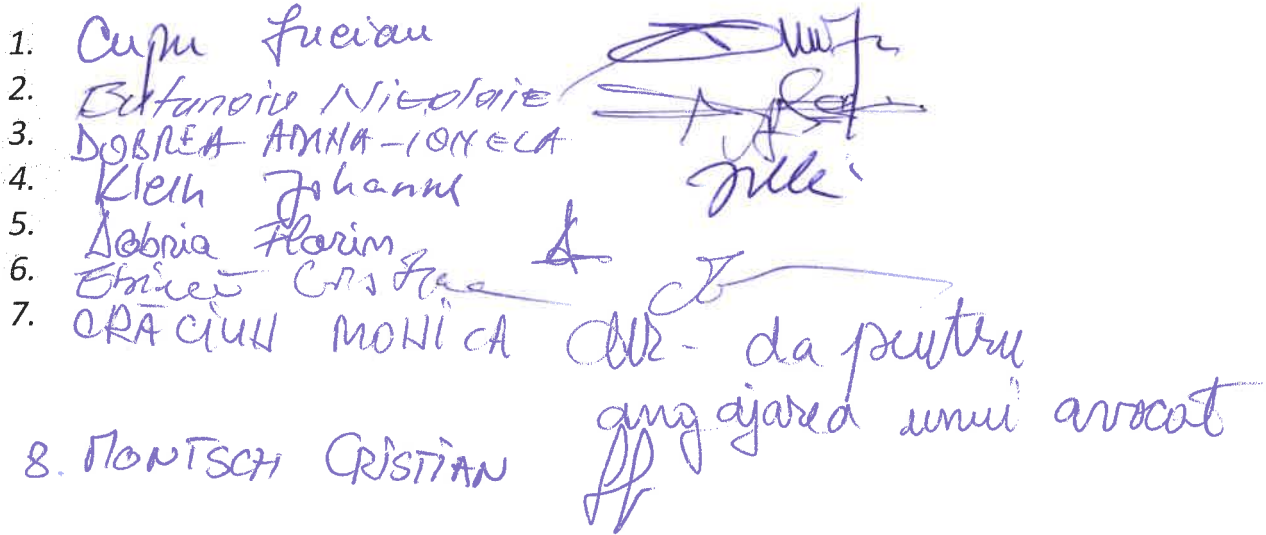 1. Cupu Lucian
2. Nicolaie
3. DOBREA ANNA-IONELA
4. Klein Johanne
5. Dobria Florin
6.
7. CRĂCIUN MONICA - da pentru
angajarea unui avocat
8. MONTSCH CRISTIAN